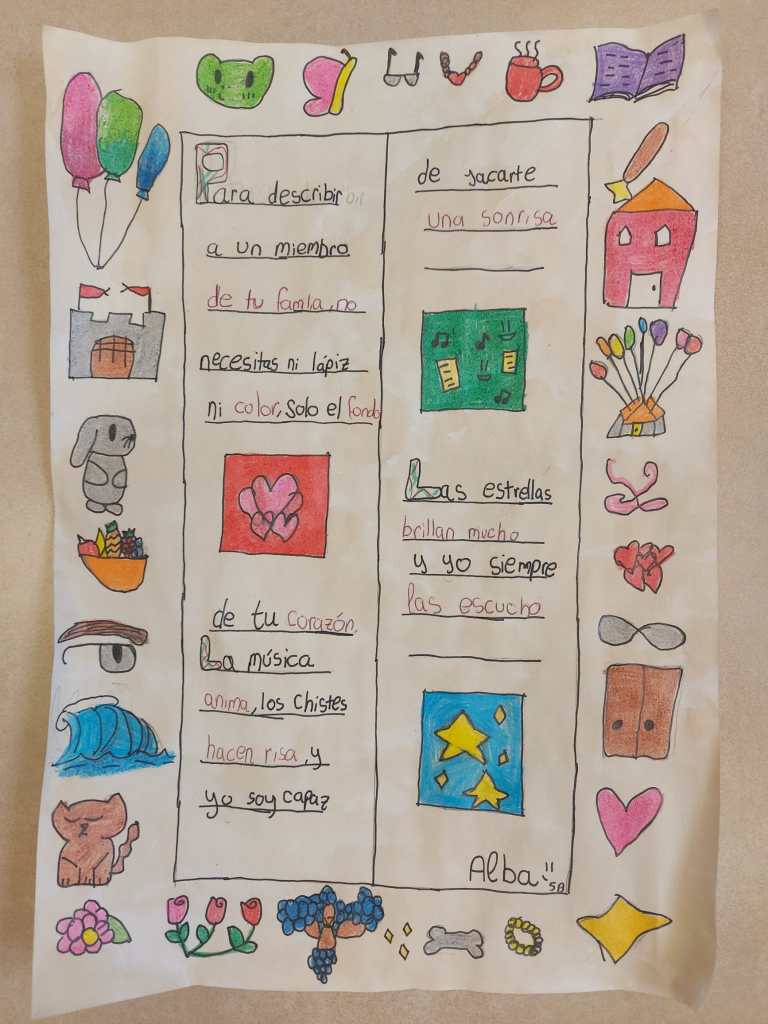 Para describir
a un miembro
de tu famlia, no
necesitas ni lápiz
ni color, solo el fondo
de tu corazón.
La música
anima, los chistes
hacen risa, y
yo soy capaz
de sacarte
una sonrisa
Las estrellas
brillan mucho
y yo siempre
las escucho
Alba
5A